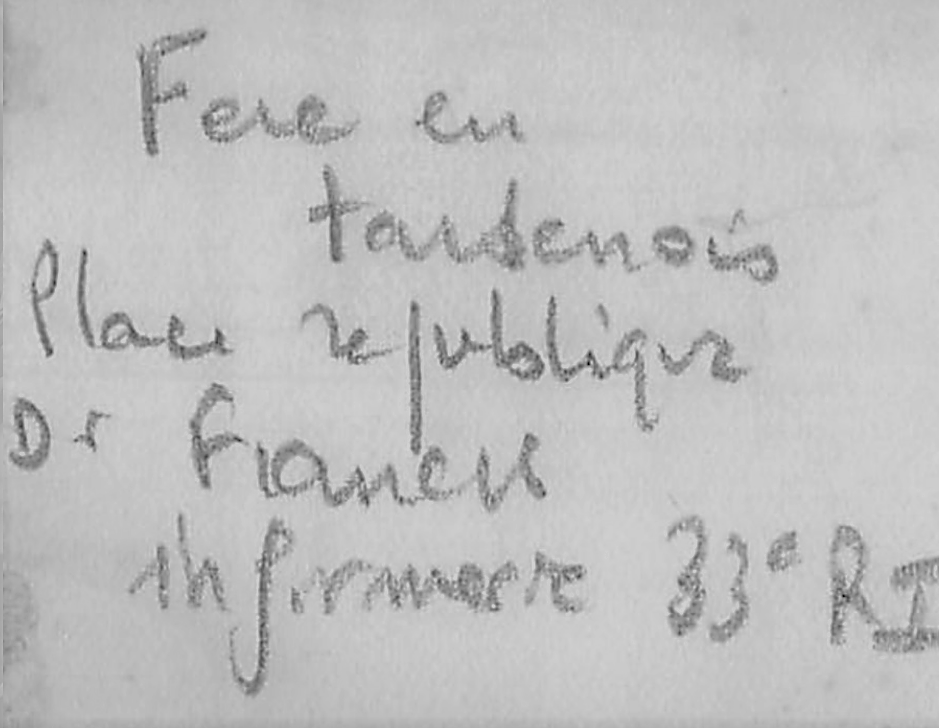 Fere en
tardenois
Place republique
Dr Francis
infirmerie 33e RI